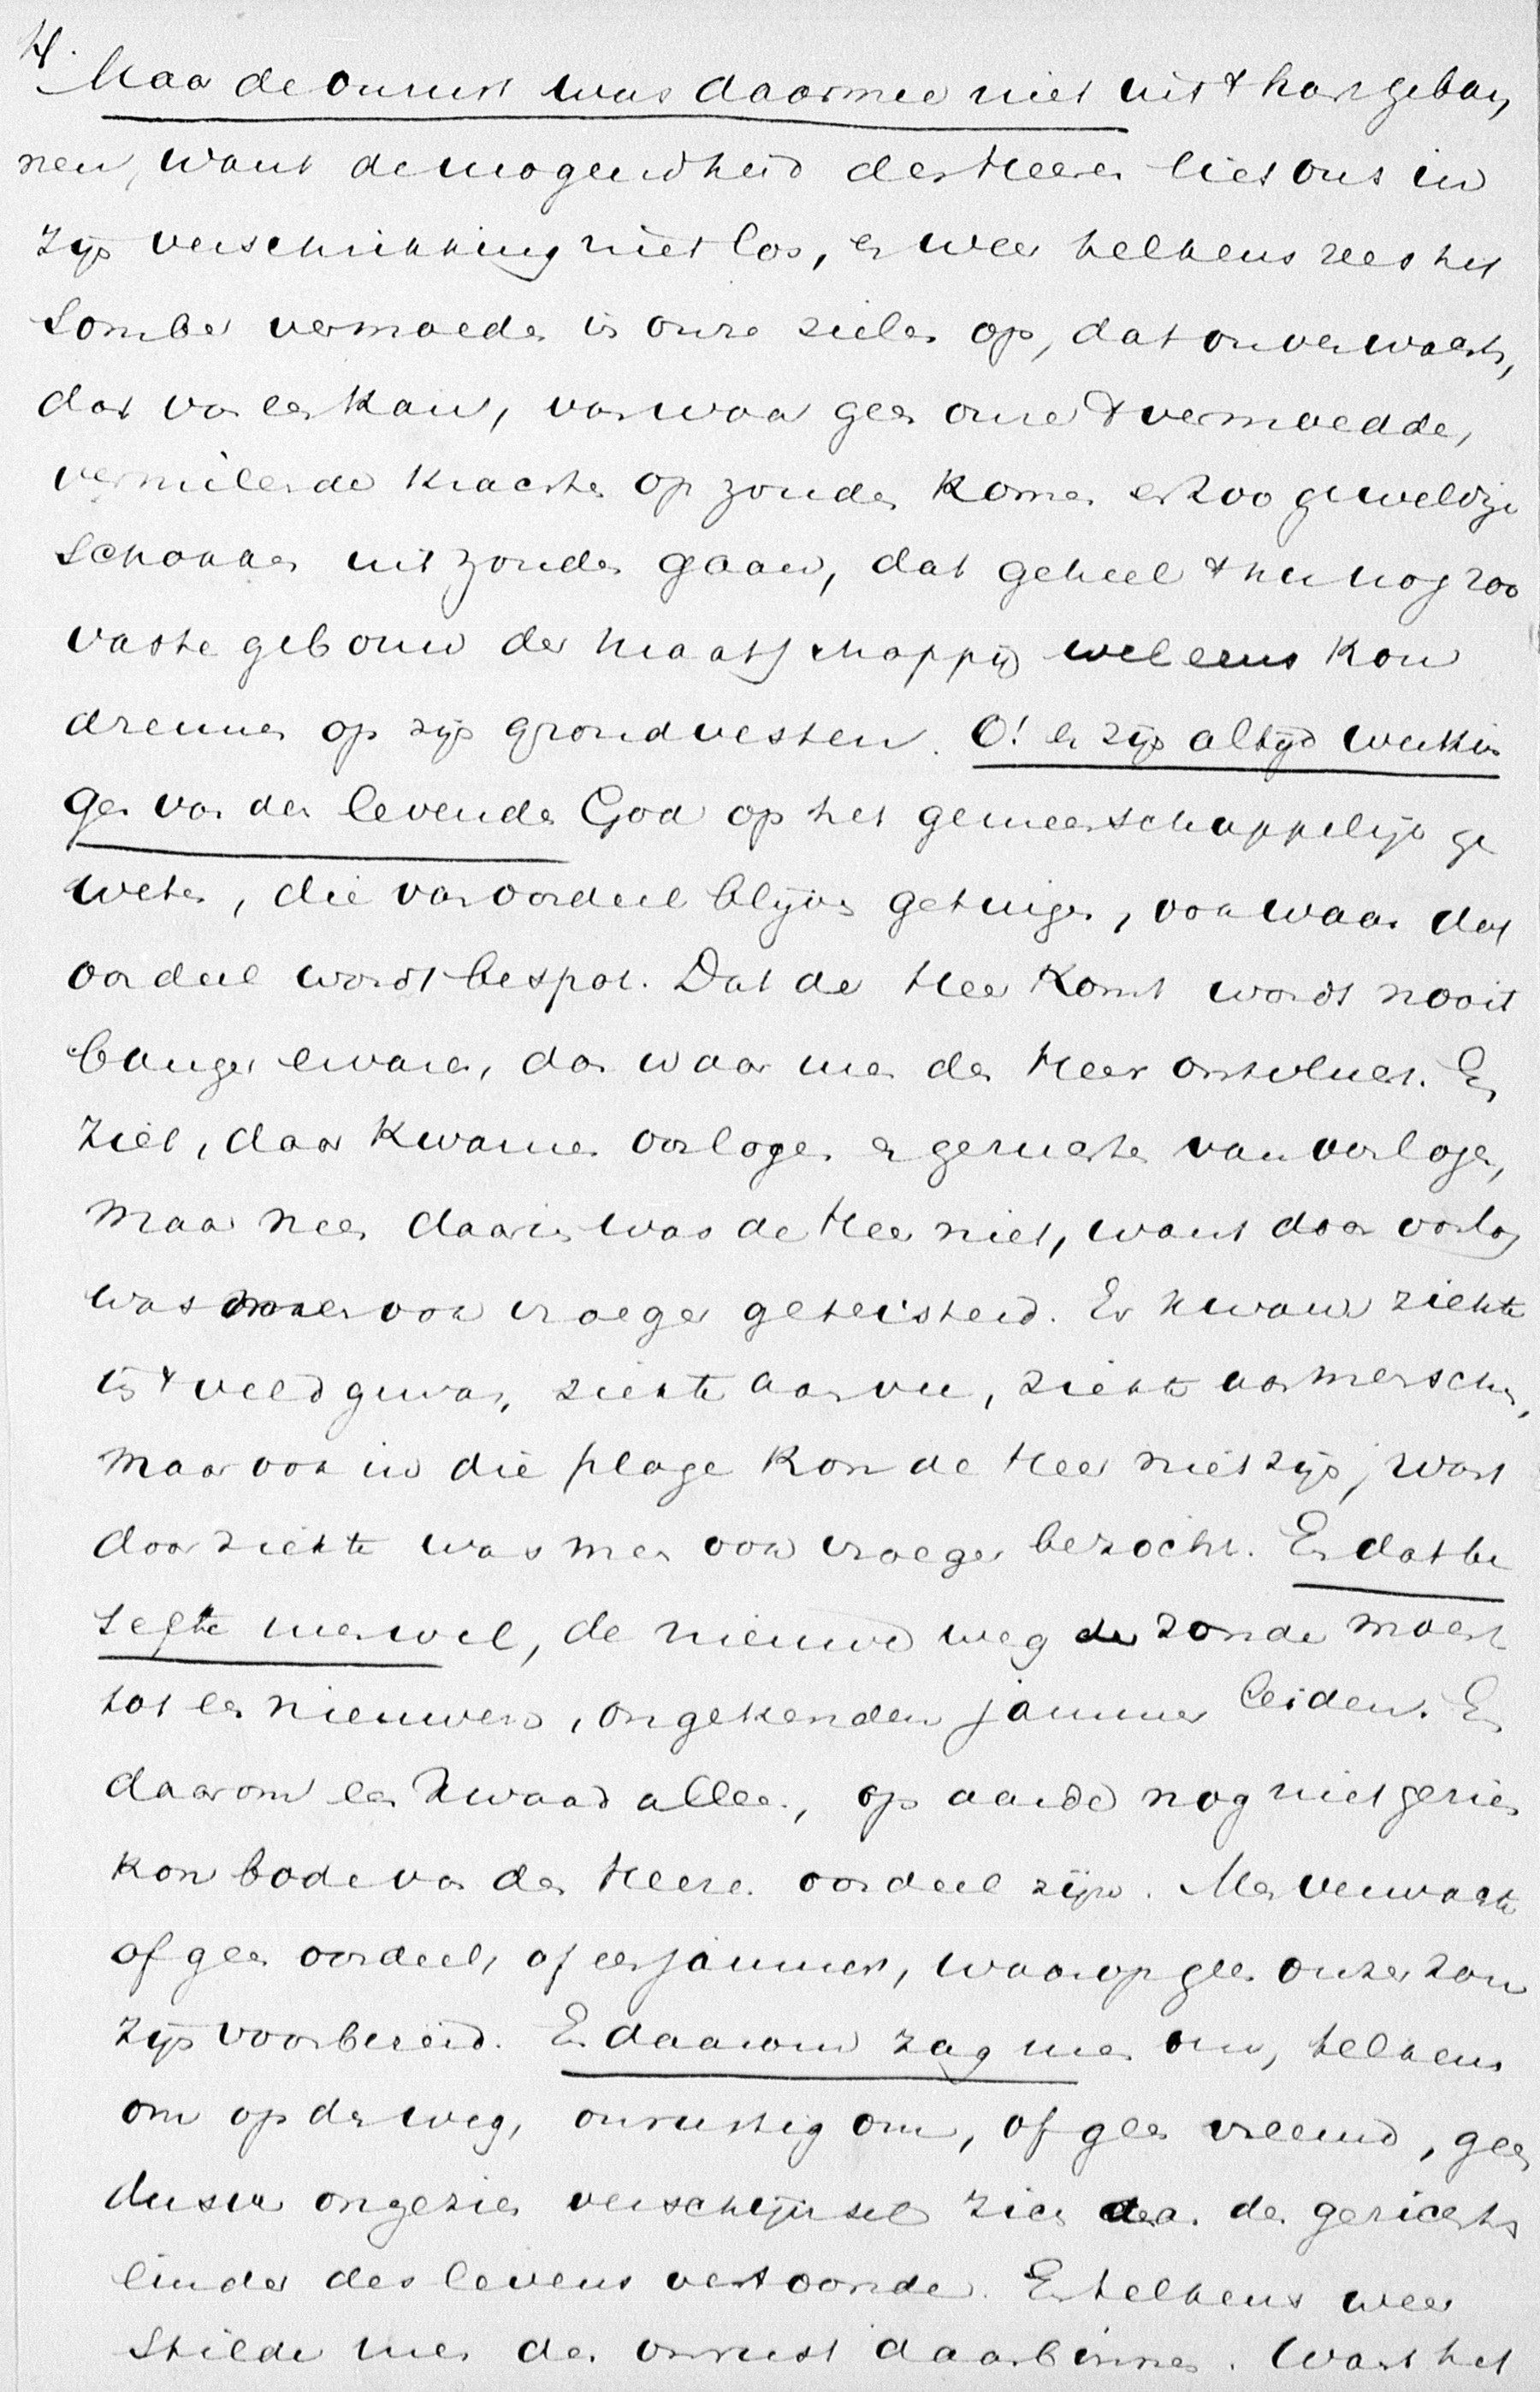 4.
Maar de onrust was daarmee niet uit 't hart geban
nen, want de mogendheid des Heeren liet ons in
zijn verschrikking niet los, en weer telkens rees het
somber vermoeden in onze zielen op, dat onverwachts,
dat van een kant, van waar geen onzer 't vermoedde,
vernielende krachten op zouden komen en zoo geweldige
schokken uit zouden gaan, dat geheel 't nu nog zoo
vaste gebouw der maatschappij wel eens kon
dreunen op zijn grondvesten. O! er zijn altijd werkin
gen van den levenden God op het gemeenschappelijk ge
weten, die van oordeel blijven getuigen, ook waar dat
oordeel wordt bespot. Dat de Heer komt wordt nooit
banger ervaren, dan waar men den Heer ontvlucht. En
ziet, daar kwamen oorlogen en geruchten van oorlogen,
maar neen daarin was de Heer niet, want door oorlog
was men ook vroeger geteisterd. Er kwam ziekte
in 't veldgewas, ziekte aan vee, ziekte aan menschen,
maar ook in die plage kon de Heer niet zijn, want
door ziekte was men ook vroeger bezocht. En dat be
sefte men wel, de nieuwe weg der zonde moest
tot een nieuwen, ongekenden jammer leiden. En
daarom een kwaad alleen, op aarde nog niet gezien
kon bode van des Heeren oordeel zijn. Men verwachtte
of geen oordeel, of een jammer, waarop geen onzer zou
zijn voorbereid. En daarom zag men om, telkens
om op den weg, onrustig om, of geen vreemd, geen
dusver ongezien verschijnsel zich aan den gezichts
einder des levens vertoonde. En telkens weer
stilde men de onrust daarbinnen. Want het